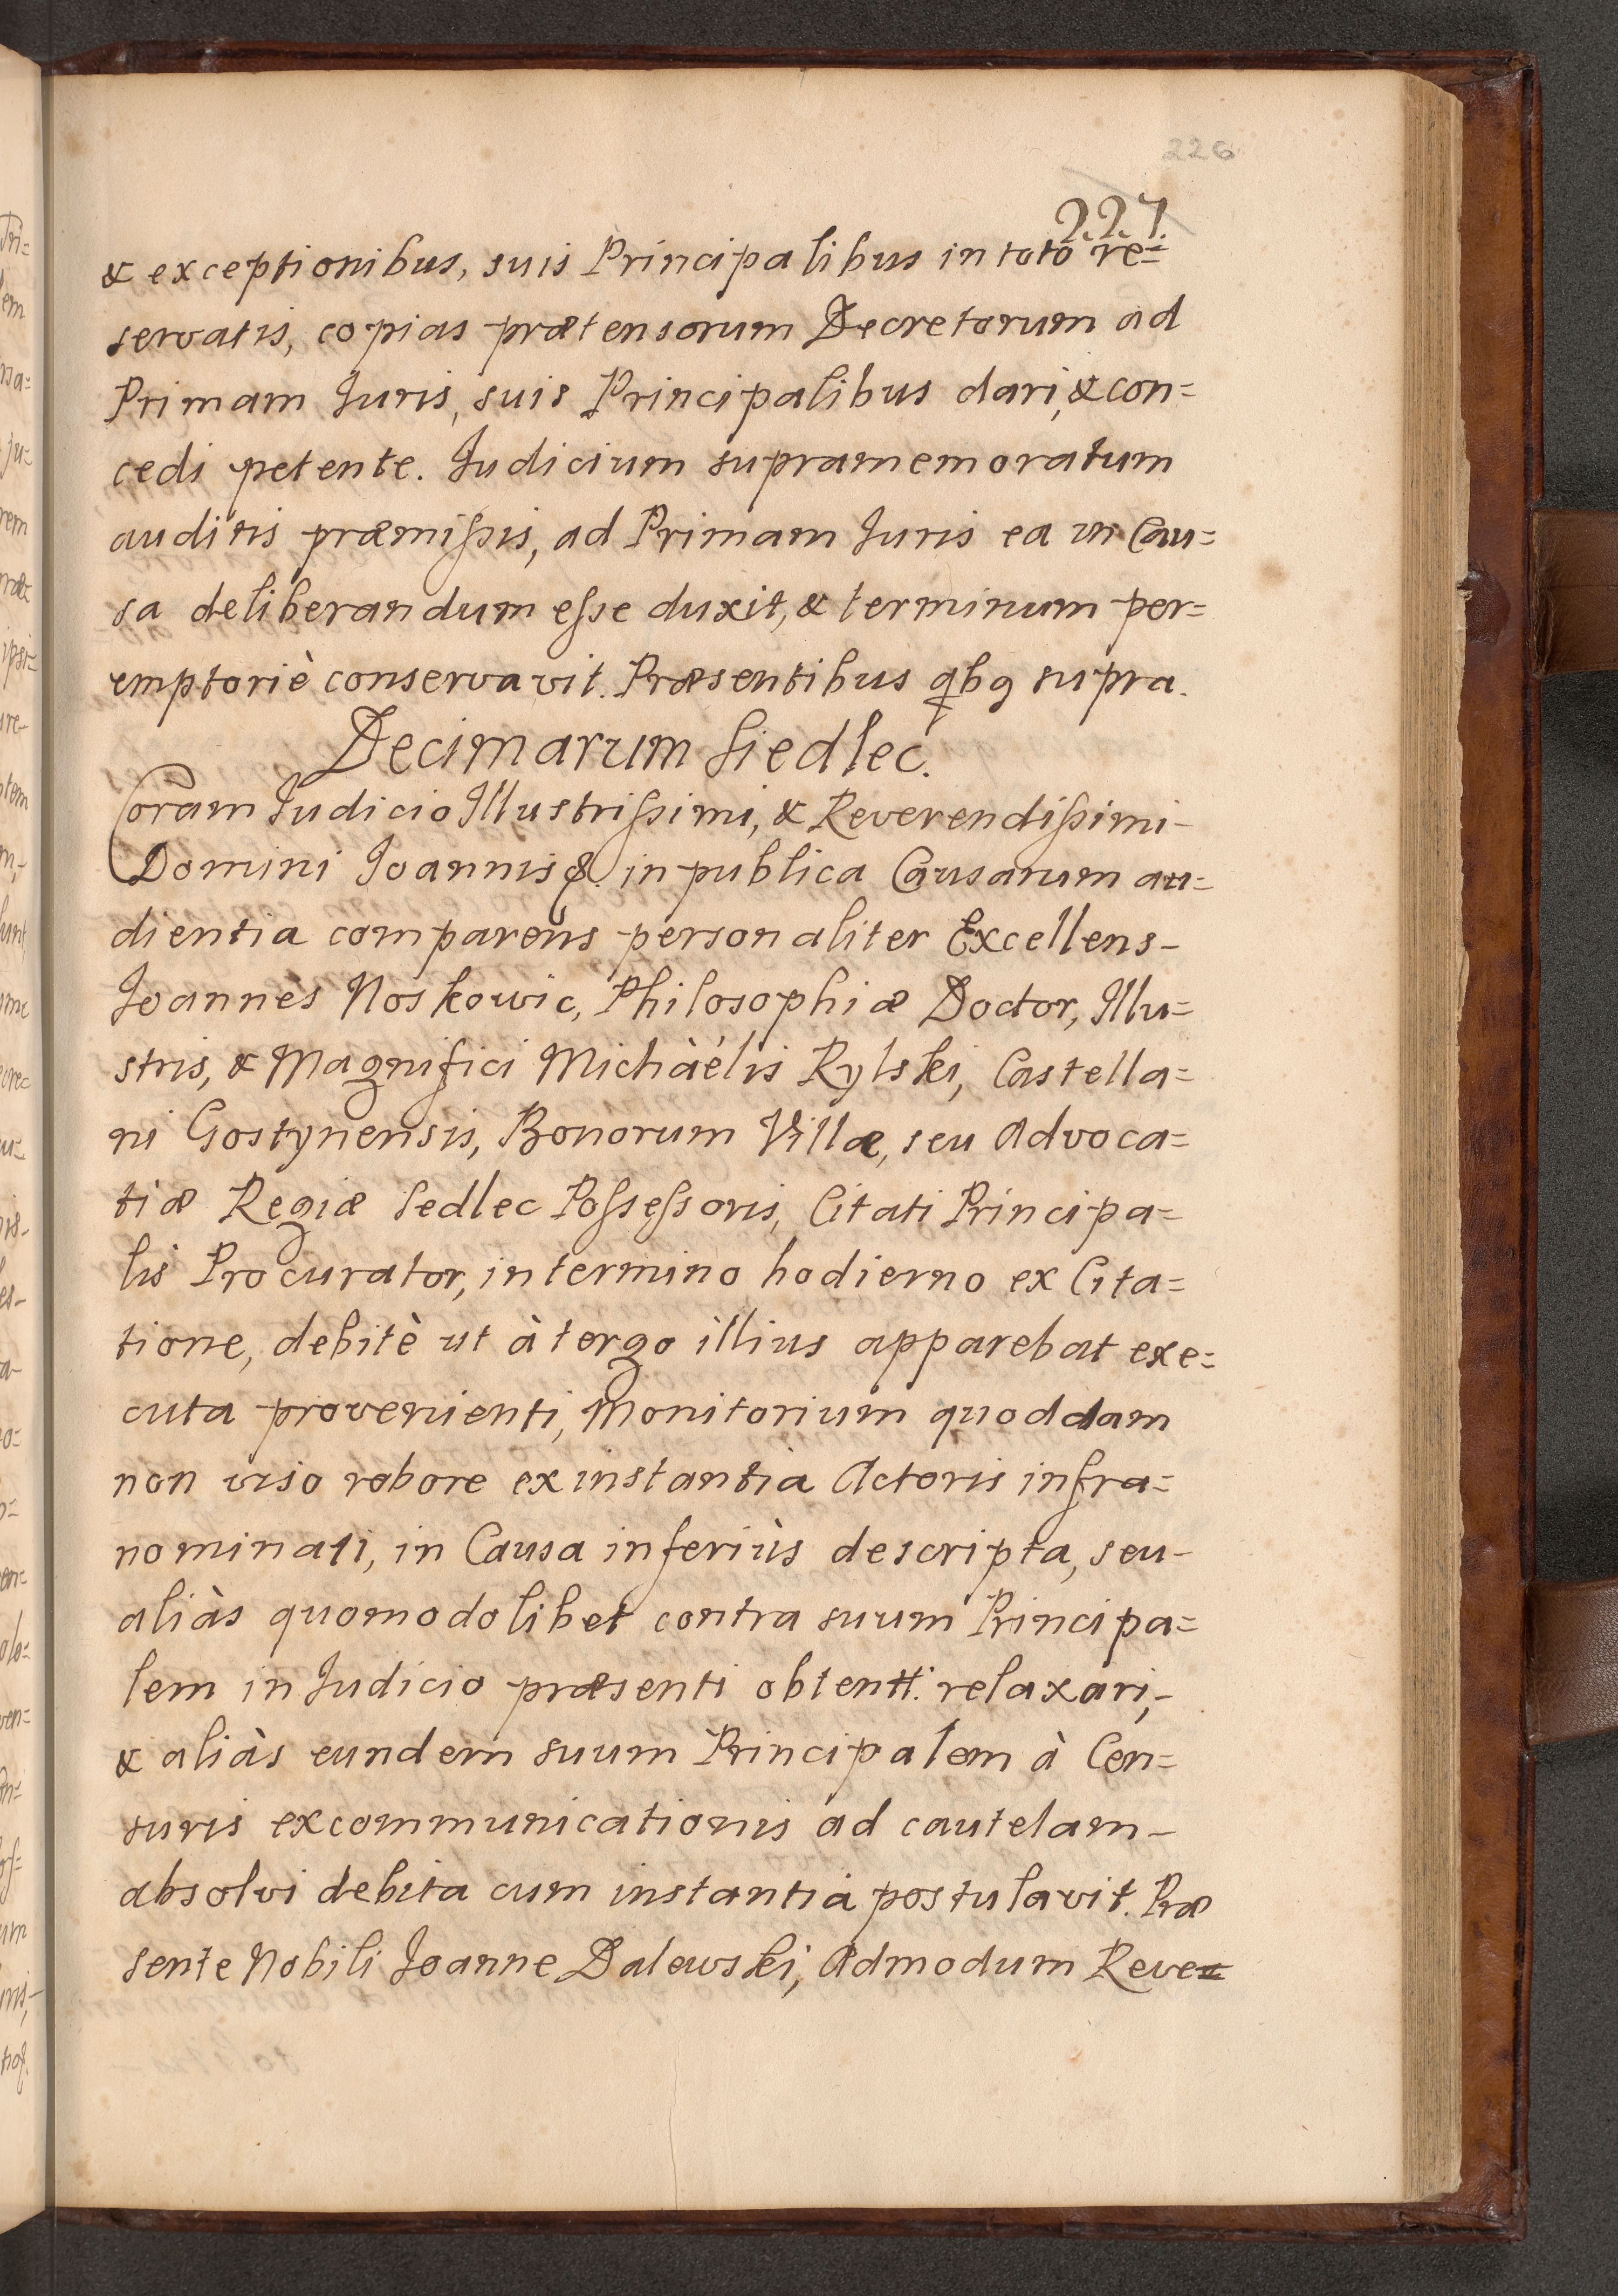 226
227.
& exceptionibus, suis Principalibus in toto re=
servatis, copias prætensorum Decretorum ad
Primam Juris, suis Principalibus dari, & con=
cedi petente. Judicium supramemoratum
auditis præmiſsis, ad Primam Juris ea in Cau=
sa deliberandum eſse duxit, & terminum per=
emptoriè conservavit. Præsentibus qbg supra.
Decimarum Siedlec.
Coram Judicio Illustriſsimi, & Reverendiſsimi-
Domini Joannis &. in publica Causarum au=
dientia comparens personaliter Excellens-
Joannes Noskowic, Philosophiæ Doctor, Illu=
stris, & Magnifici Michàélis Rylski, Castella=
ni Gostynensis, Bonorum Villæ, seu Advoca=
tiæ Regiæ Sedlec Poſseſsoris, Citati Principa=
lis Procurator, in termino hodierno ex Cita=
tione, debitè ut à tergo illius apparebat exe=
cuta provenienti, Monitorium quoddam
non viso robore ex instantia Actoris infra=
nominati, in Causa inferiùs descripta, seu-
aliàs quomodolibet contra suum Principa=
lem in Judicio præsenti obtentt. relaxari,-
& aliàs eundem suum Principalem à Cen=
suris excommunicationis ad cautelam-
absolvi debita cum instantia postulavit. Præ
sente Nobili Joanne Dalewski, Admodum Reve=